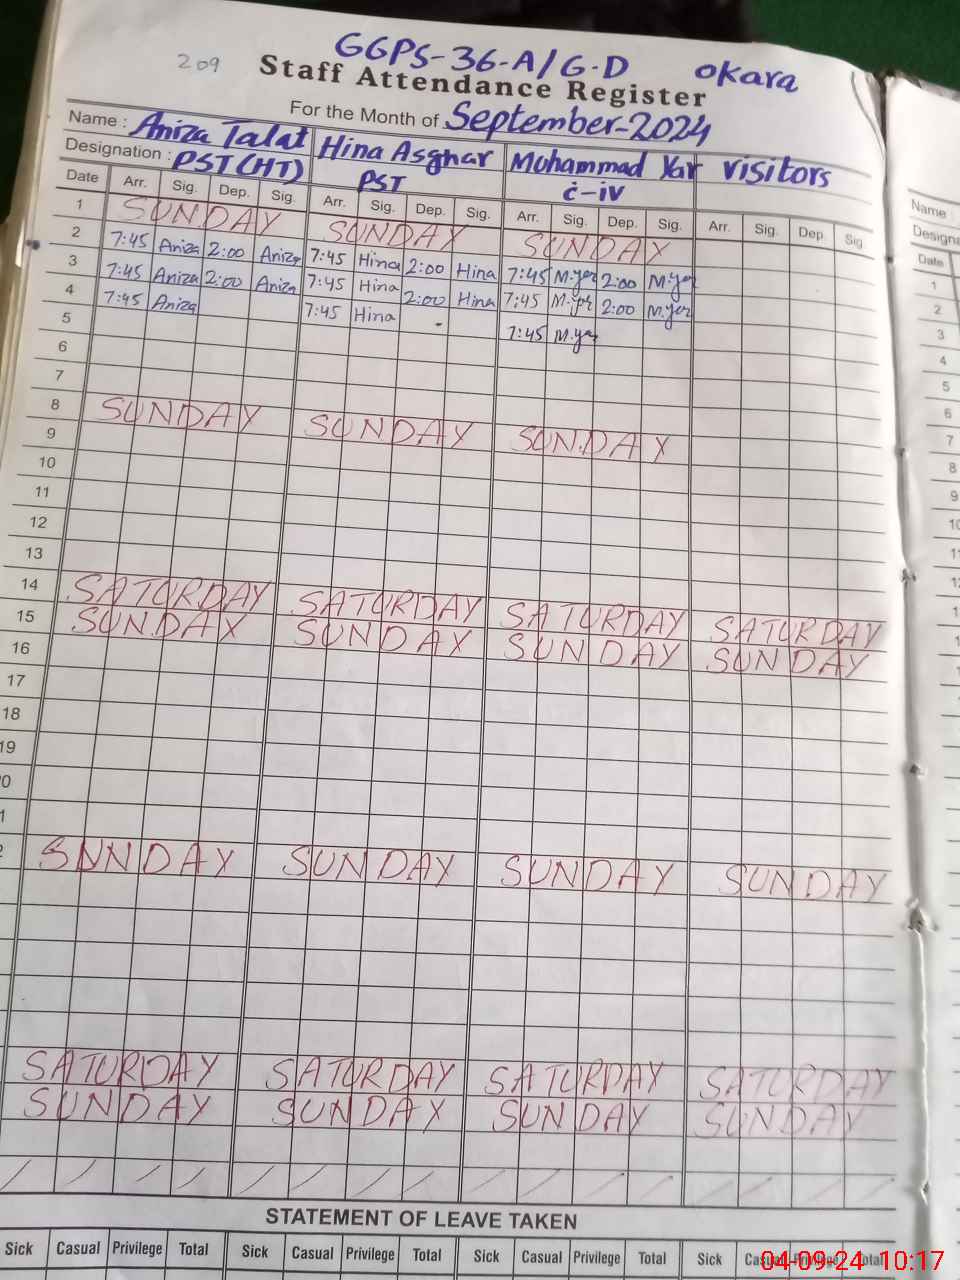 209
GGPS-36-A/G.D Okara
Staff Attendance Register
For the Month of September-2024
Name : Aniza Talat Hina Asghar Muhammad Yar Visitors
Designation : PST(HT) PST C-iv
Date Arr. Sig. Dep. Sig. Arr. Sig. Dep. Sig. Arr. Sig. Dep. Sig. Arr. Sig. Dep. Sig.
1 SUNDAY SUNDAY SUNDAY
2 7:45 Aniza 2:00 Aniza 7:45 Hina 2:00 Hina 7:45 M.yar 2:00 M.yar
3 7:45 Aniza 2:00 Aniza 7:45 Hina 2:00 Hina 7:45 M.yar 2:00 M.yar
4 7:45 Aniza 7:45 Hina 7:45 M.yar
5
6
7
8 SUNDAY SUNDAY SUNDAY
9
10
11
12
13
14 SATURDAY SATURDAY SATURDAY SATURDAY
15 SUNDAY SUNDAY SUNDAY SUNDAY
16
17
18
19
0
1
2 SUNDAY SUNDAY SUNDAY SUNDAY
SATURDAY SATURDAY SATURDAY SATURDAY
SUNDAY SUNDAY SUNDAY SUNDAY
STATEMENT OF LEAVE TAKEN
Sick Casual Privilege Total Sick Casual Privilege Total Sick Casual Privilege Total Sick Casual Privilege Total
Name :
Designa
Date
1
2
3
4
5
6
7
8
9
10
11
12
04-09-24 10:17